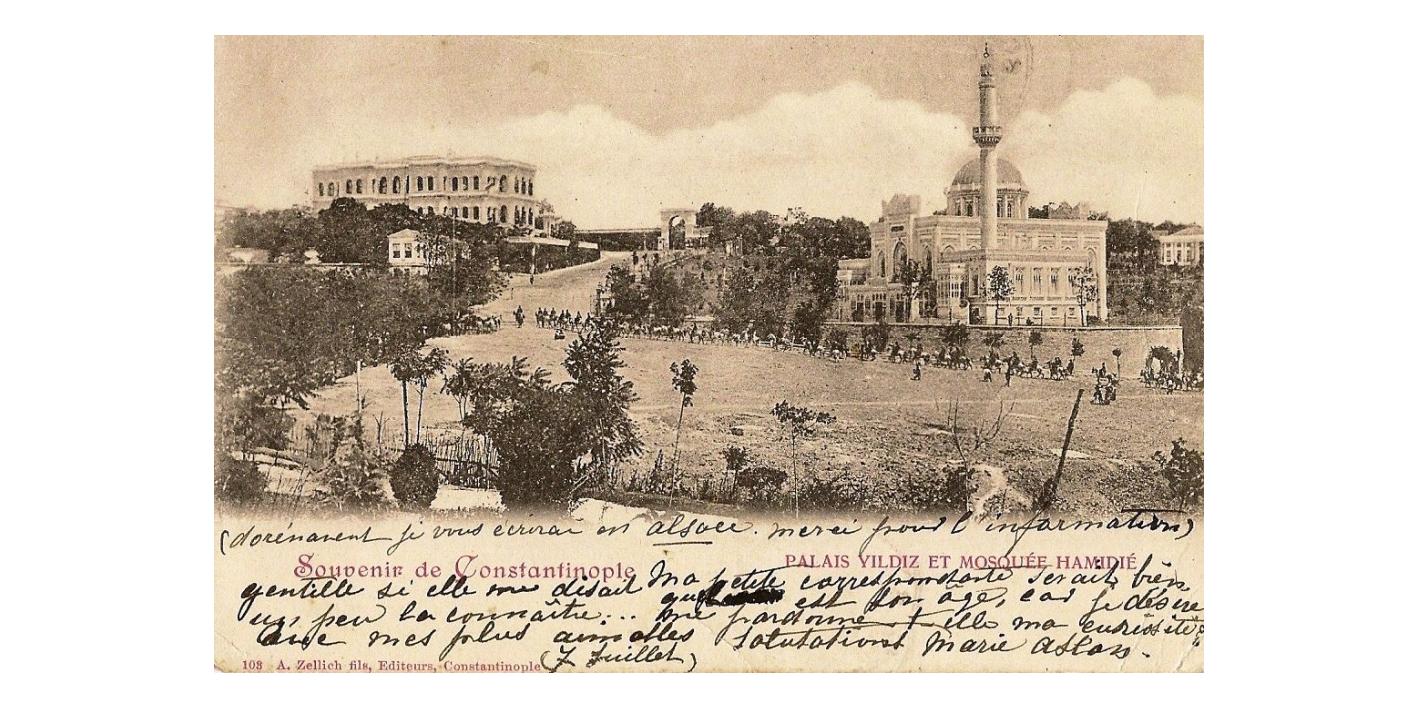 (dorénavent je vous écrirai en alsace. merci pour l'information)
Souvenir de Constantinople
PALAIS YILDIZ ET MOSQUÉE HAMIDIÉ
Ma petite correspondante serait bien
gentille si elle me disait quel est son âge, car je désire
un peu la connaître... me pardonne-t-elle ma curiosité?
Avec mes plus aimables salutations Marie Aslan.
(7 Juillet)
103 A. Zellich fils, Editeurs, Constantinople